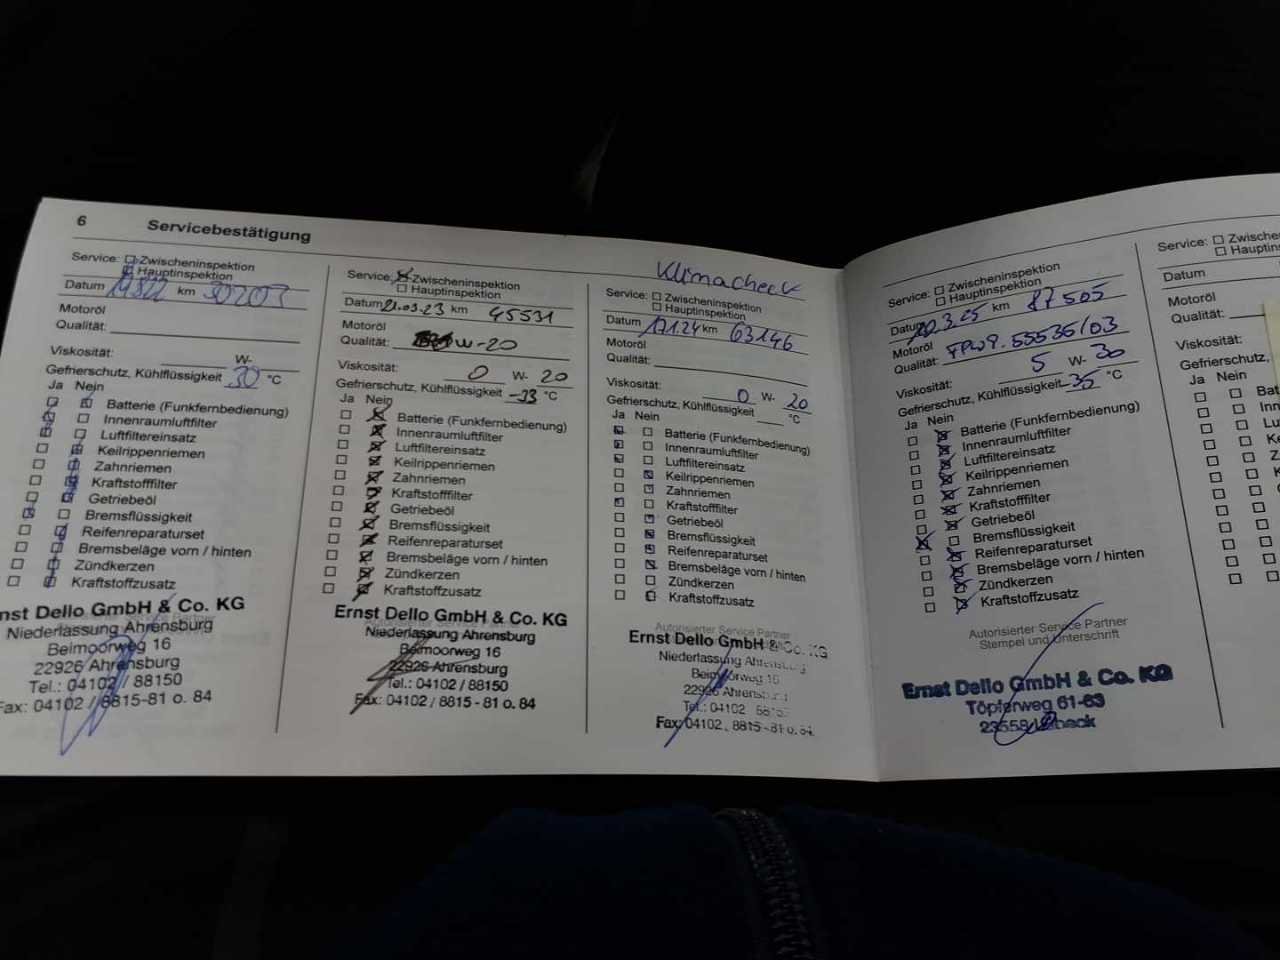 6 Servicebestätigung
Service: Zwischeninspektion
Hauptinspektion
Datum km 30203
Motoröl
Qualität:
Viskosität: W-
Gefrierschutz, Kühlflüssigkeit 30 °C
Ja Nein
Batterie (Funkfernbedienung)
Innenraumluftfilter
Luftfiltereinsatz
Keilrippenriemen
Zahnriemen
Kraftstofffilter
Getriebeöl
Bremsflüssigkeit
Reifenreparaturset
Bremsbeläge vorn / hinten
Zündkerzen
Kraftstoffzusatz
nst Dello GmbH & Co. KG
Niederlassung Ahrensburg
Beimoorweg 16
22926 Ahrensburg
Tel.: 04102 / 88150
Fax: 04102 / 8815-81 o. 84
Service: Zwischeninspektion
Hauptinspektion
Datum 21.03.23 km 45531
Motoröl
Qualität: W-20
Viskosität: 0 W- 20
Gefrierschutz, Kühlflüssigkeit -33 °C
Ja Nein
Batterie (Funkfernbedienung)
Innenraumluftfilter
Luftfiltereinsatz
Keilrippenriemen
Zahnriemen
Kraftstofffilter
Getriebeöl
Bremsflüssigkeit
Reifenreparaturset
Bremsbeläge vorn / hinten
Zündkerzen
Kraftstoffzusatz
Ernst Dello GmbH & Co. KG
Niederlassung Ahrensburg
Beimoorweg 16
22926 Ahrensburg
Tel.: 04102 / 88150
Fax: 04102 / 8815 - 81 o. 84
Klimacheck
Service: Zwischeninspektion
Hauptinspektion
Datum 17.1.24 km 63146
Motoröl
Qualität:
Viskosität: 0 W- 20
Gefrierschutz, Kühlflüssigkeit °C
Ja Nein
Batterie (Funkfernbedienung)
Innenraumluftfilter
Luftfiltereinsatz
Keilrippenriemen
Zahnriemen
Kraftstofffilter
Getriebeöl
Bremsflüssigkeit
Reifenreparaturset
Bremsbeläge vorn / hinten
Zündkerzen
Kraftstoffzusatz
Autorisierter Service Partner
Ernst Dello GmbH & Co. KG
Niederlassung Ahrensburg
Beimoorweg 16
22926 Ahrensburg
Tel.: 04102
Fax: 04102 . 8815 -81 o. 84
Service: Zwischeninspektion
Hauptinspektion
Datum 20.3.25 km 87505
Motoröl
Qualität: 55535/03
Viskosität: 5 W- 30
Gefrierschutz, Kühlflüssigkeit -35 °C
Ja Nein
Batterie (Funkfernbedienung)
Innenraumluftfilter
Luftfiltereinsatz
Keilrippenriemen
Zahnriemen
Kraftstofffilter
Getriebeöl
Bremsflüssigkeit
Reifenreparaturset
Bremsbeläge vorn / hinten
Zündkerzen
Kraftstoffzusatz
Autorisierter Service Partner
Stempel und Unterschrift
Ernst Dello GmbH & Co. KG
Töpferweg 61-63
23558 Lübeck
Service: Zwische
Hauptins
Datum
Motoröl
Qualität:
Viskosität:
Gefrierschutz,
Ja Nein
Bat
Inn
Lu
K
Z